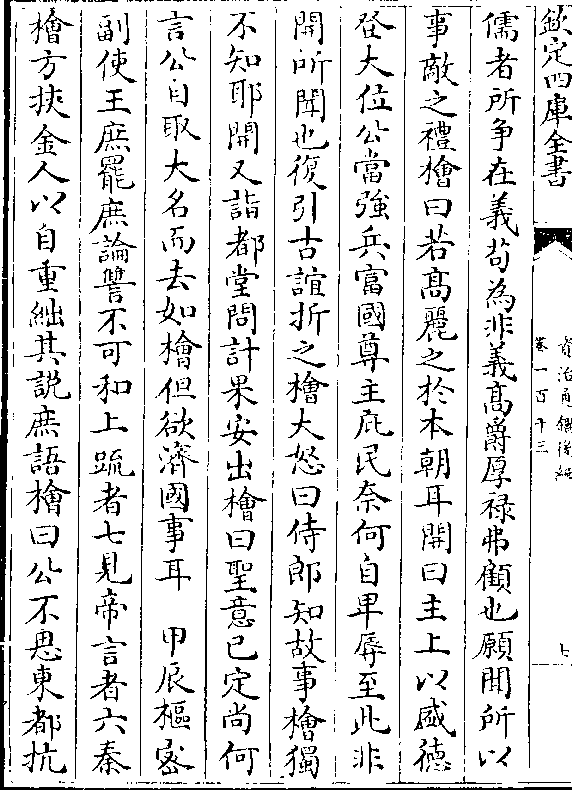 欽定四庫全書
資治通鑑後編
卷一百十三
儒者所争在義茍為非義髙爵厚禄弗顧也願聞所以
事敵之禮檜曰若髙麗之於本朝耳開曰主上以盛德
登大位公當強兵富國尊主庇民奈何自卑辱至此非
開所聞也復引古誼折之檜大怒曰侍郎知故事檜獨
不知耶開又詣都堂問計果安出檜曰聖意已定尚何
言公自取大名而去如檜但欲濟國事耳　甲辰樞宻
副使王庶罷庶論讐不可和上疏者七見帝言者六秦
檜方挾金人以自重絀其説庶語檜曰公不思東都抗